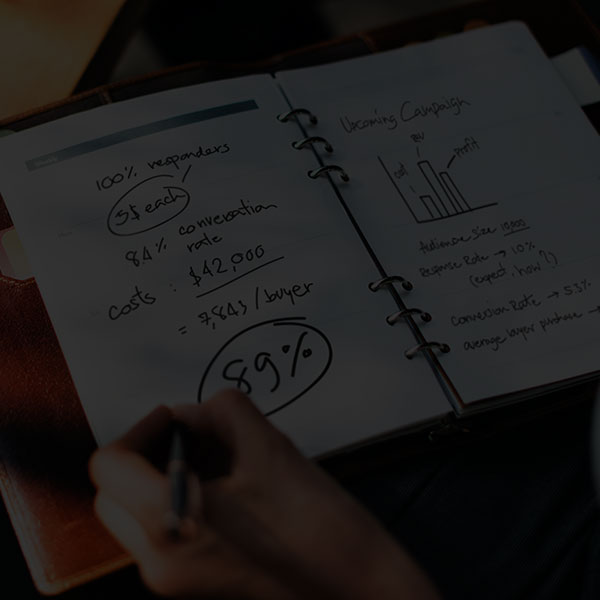 100% responders
5$ each
84% conversation
rate
costs : $42,000
= 7,843 / buyer
89%
Upcoming Campaign
cost
rev
profit
Audience Size 10,000
Response Rate → 10%
(expect, how?)
Conversion Rate → 5.3%
average buyer purchase →